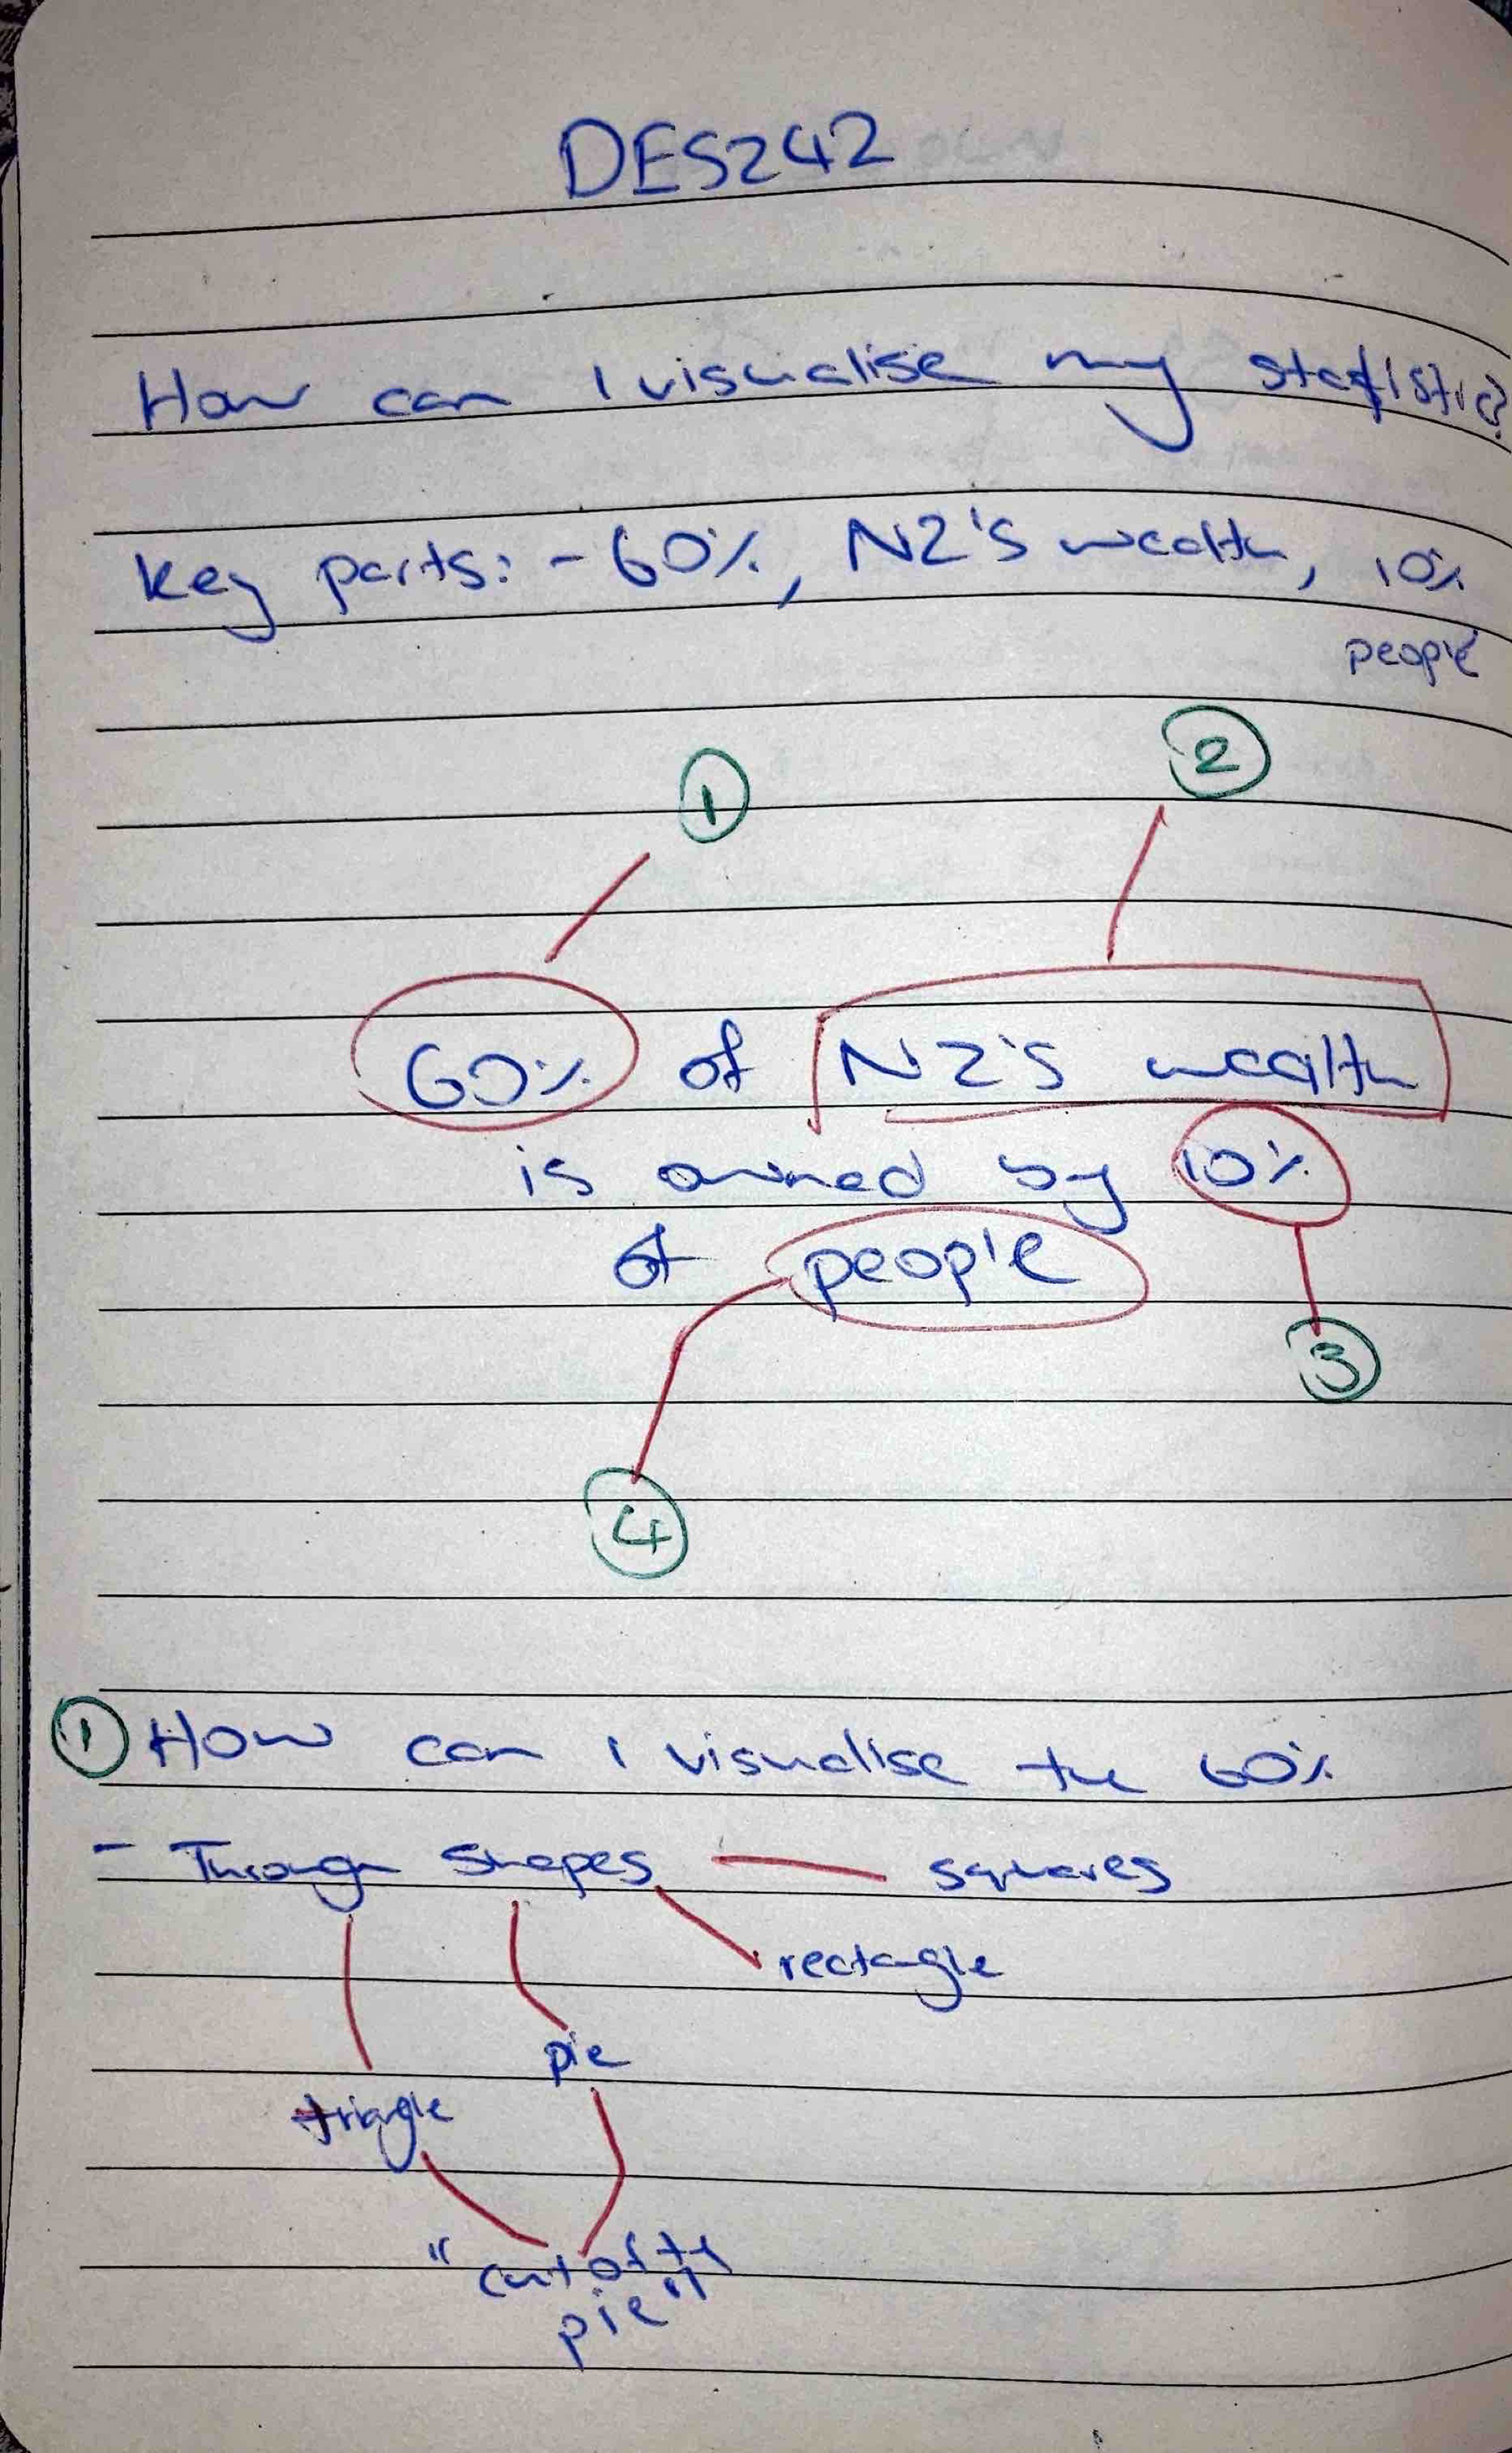 DES242
How can I visualise my statistic?
Key parts: - 60%, NZ's wealth, 10%
people
1
2
60% of NZ's wealth
is owned by 10%
of people
3
4
1 How can I visualise the 60%
- Through shapes squares
rectagle
pie
triagle
"cut of the
pie"